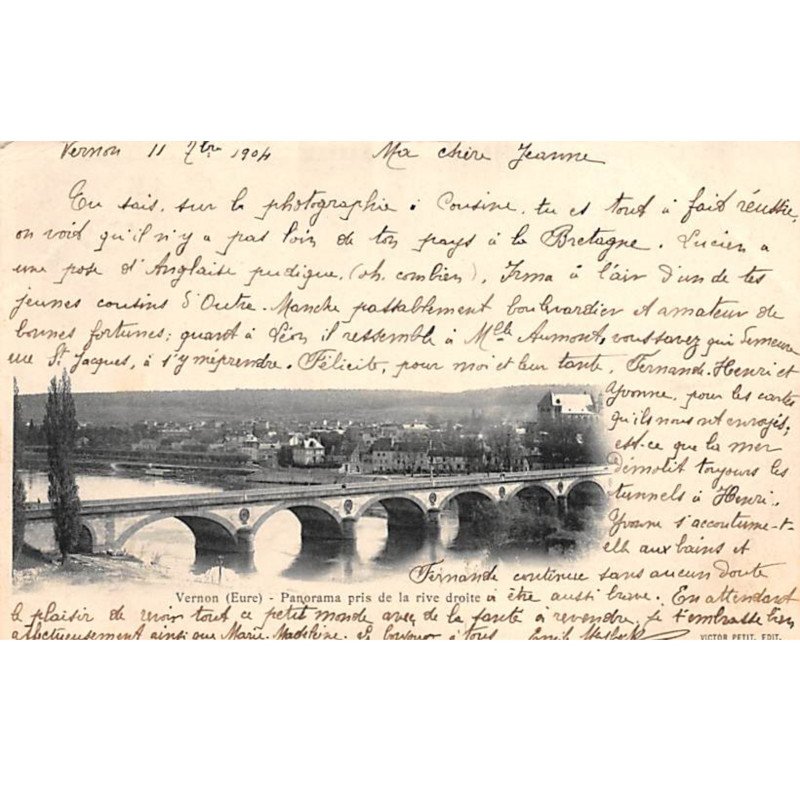 Vernon 11 7bre 1904 Ma chère Jeanne
Tu sais, sur la photographie à Cousine, tu es tout à fait réussie,
on voit qu'il n'y a pas loin de ton pays à la Bretagne. Lucien a
une pose d'Anglaise pudique, (oh combien). Irma à l'air d'un de tes
jeunes cousins d'Outre-Manche passablement boulevardier et amateur de
bonnes fortunes; quant à Léon il ressemble à Mlle Aumont, vous savez qui demeure
rue St Jacques, à s'y méprendre. Félicite, pour moi et leur tante, Fernande, Henri et
Yvonne, pour les cartes
qu'ils nous ont envoyés,
est-ce que la mer
démolit toujours les
tunnels à Henri.
Yvonne s'accoutume-t-
elle aux bains et
Fernande continue sans aucun doute
Vernon (Eure) - Panorama pris de la rive droite
à être aussi brave. En attendant
le plaisir de revoir tout ce petit monde avec de la santé à revendre, je t'embrasse bien
affectueusement ainsi que Marie-Madeleine. Le bonjour à tous. Emile
VICTOR PETIT, EDIT.